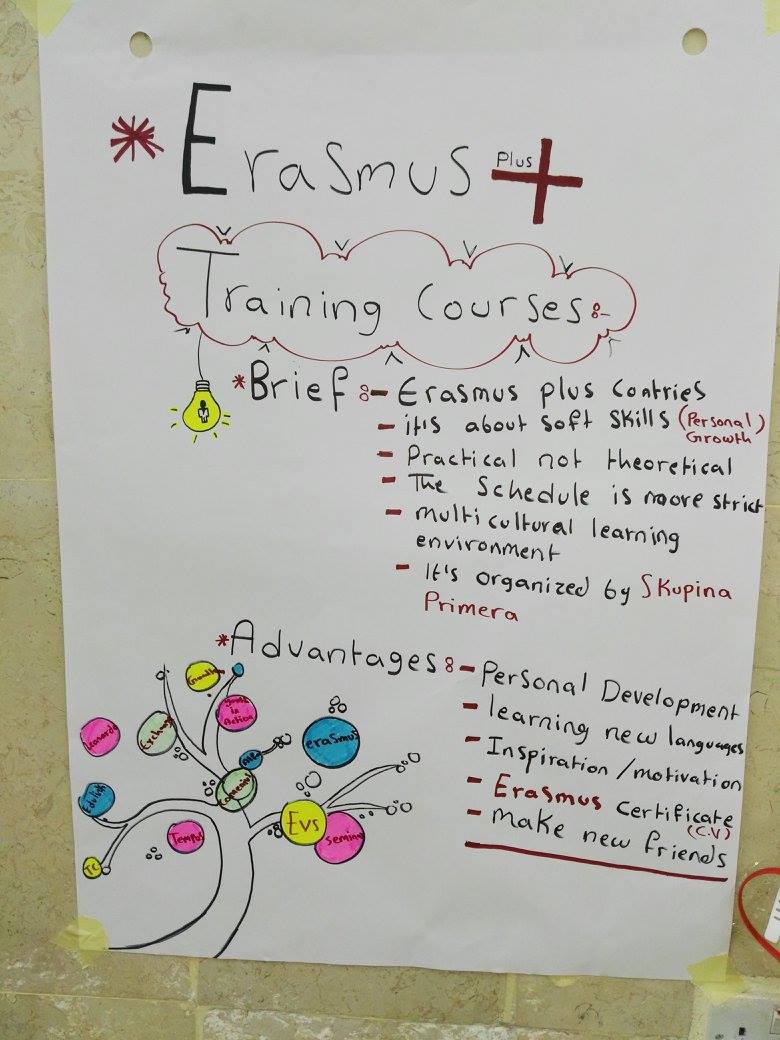 * Erasmus Plus +
Training Courses:-
* Brief :- Erasmus plus Contries
- it's about Soft Skills (Personal Growth)
- Practical not theoretical
- The Schedule is more strict
- multicultural learning
environment
- It's organized by Skupina
Primera
* Advantages :- Personal Development
- learning new languages
- Inspiration/motivation
- Erasmus Certificate
(C.V)
- make new friends
Growth
in
Action
erasmus
Evs
Tempus
TC